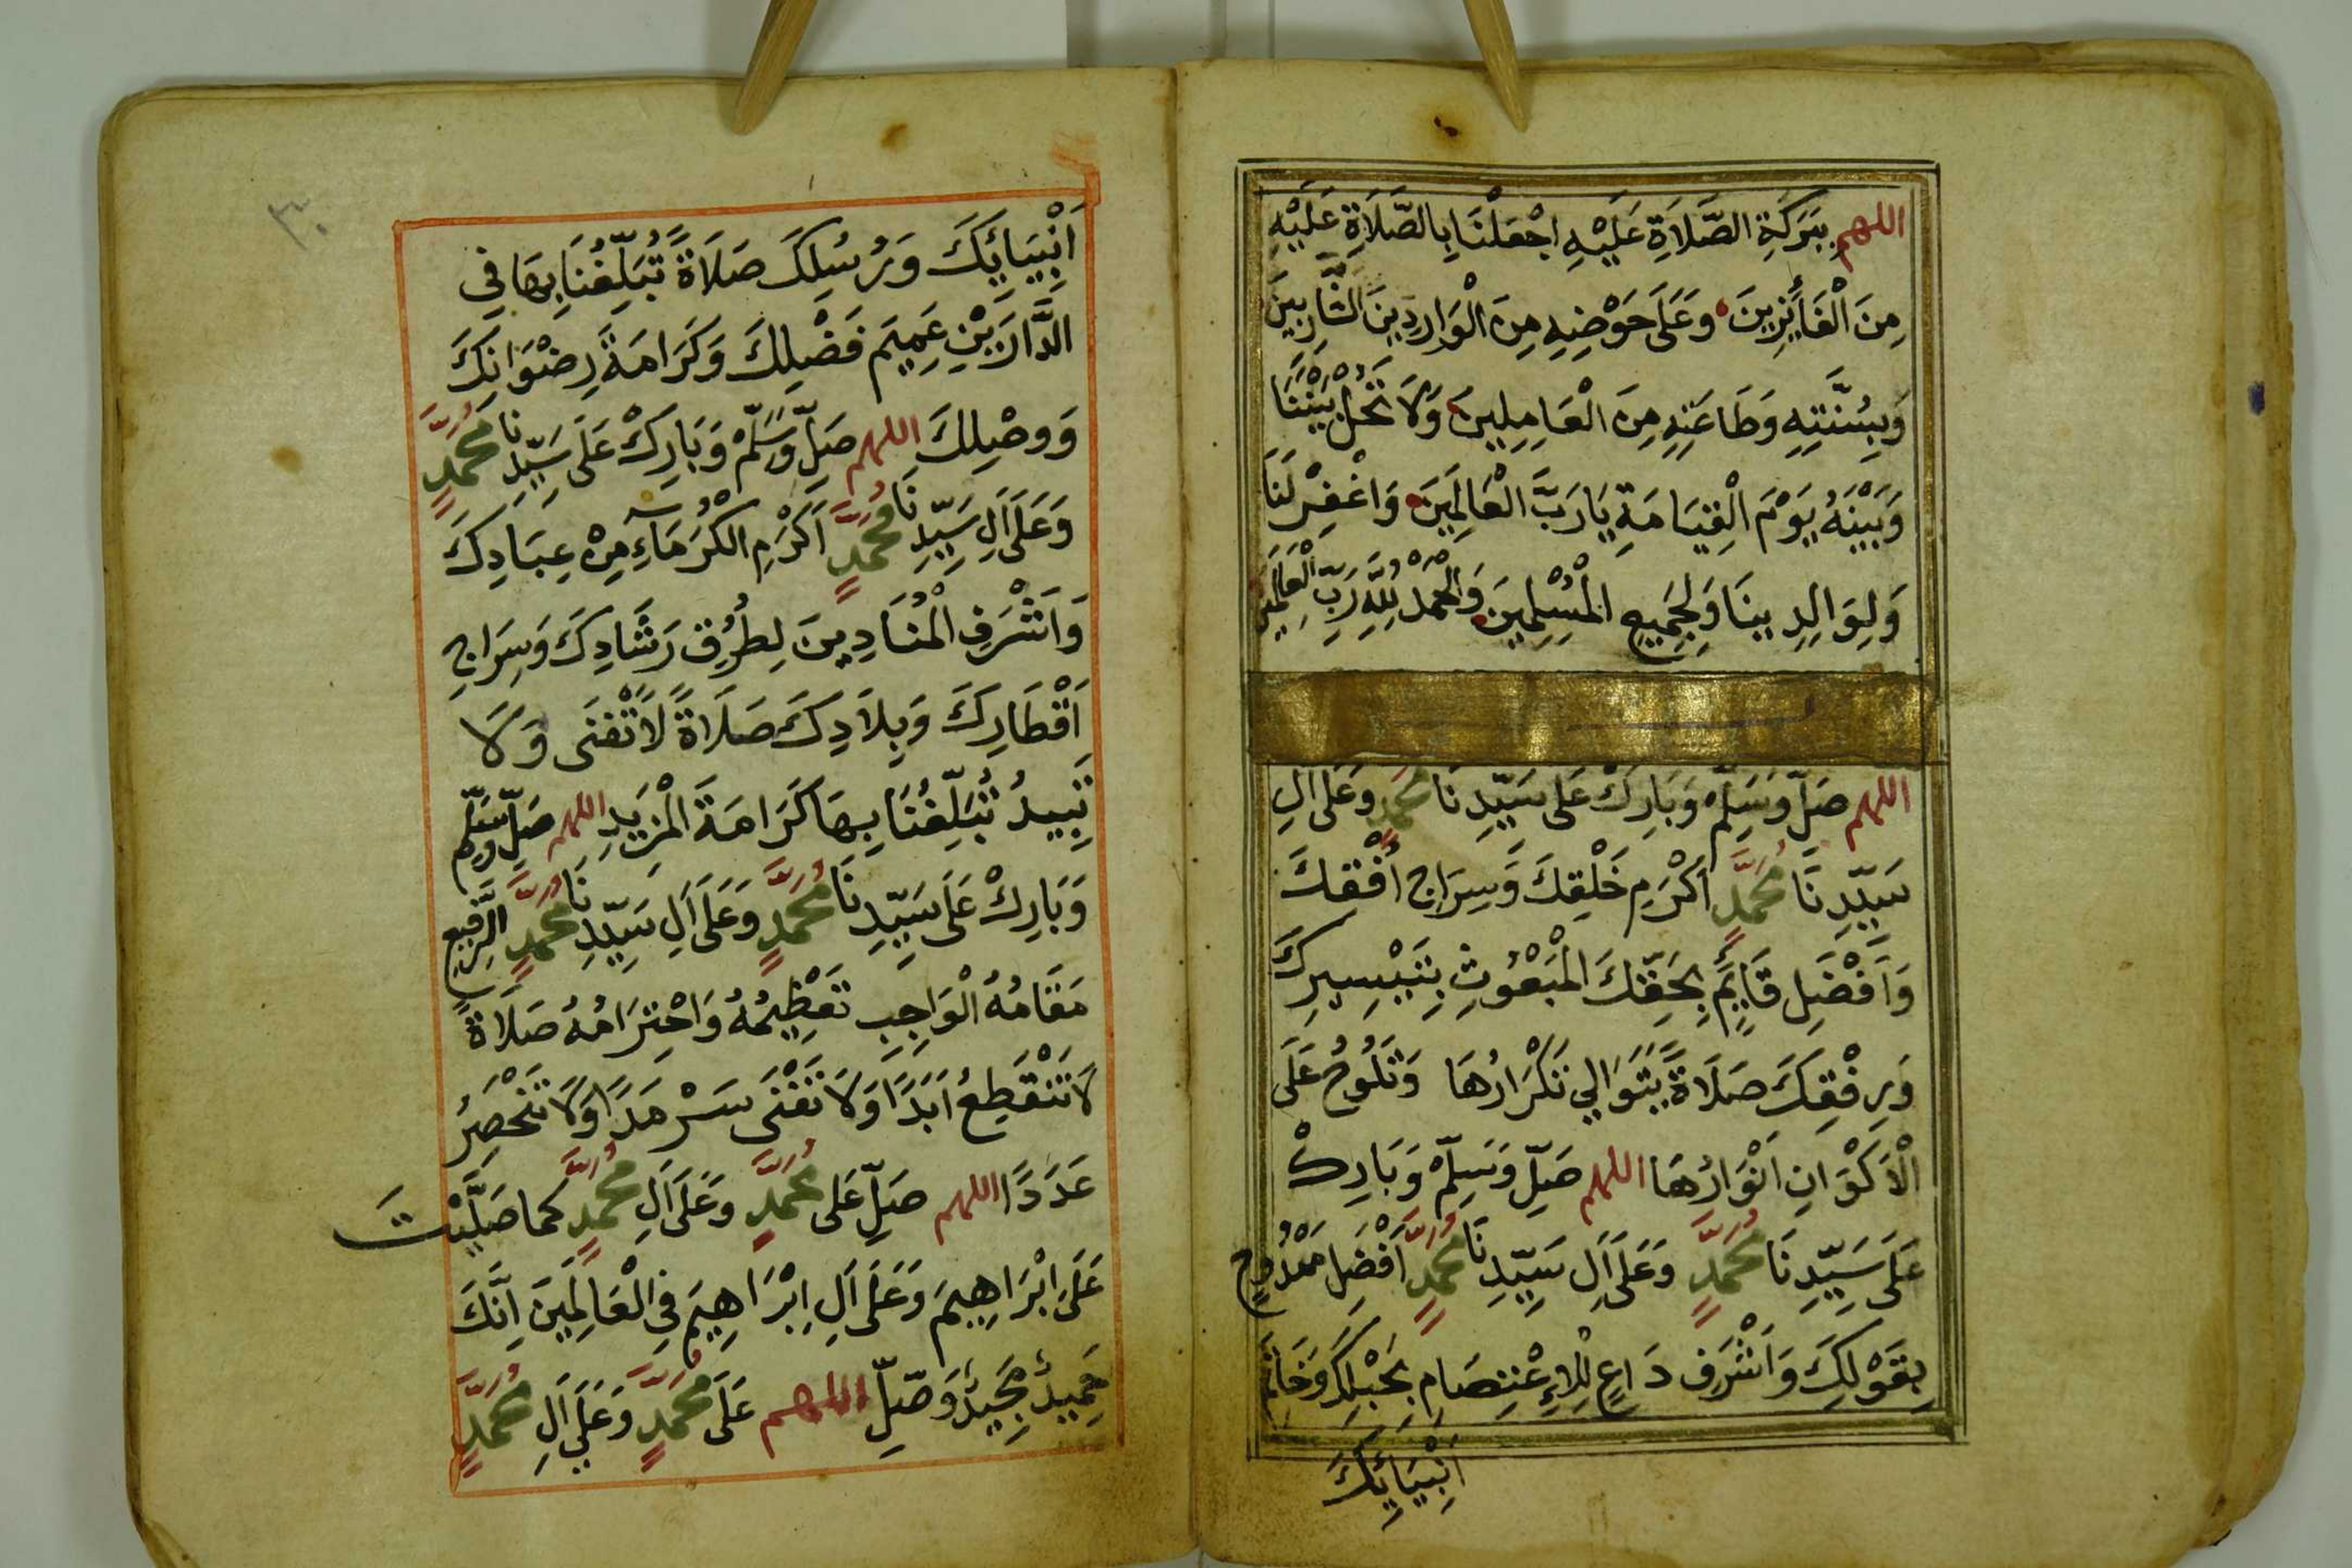 اللهم بِبَرَكَةِ الصَّلَاةِ عَلَيْهِ اجْعَلْنَا بِالصَّلَاةِ عَلَيْهِ
مِنَ الْفَائِزِينَ وَعَلَى حَوْضِهِ مِنَ الْوَارِدِينَ الشَّارِبِينَ
وَبِسُنَّتِهِ وَطَاعَتِهِ مِنَ الْعَامِلِينَ وَلَا تَحُلْ بَيْنَنَا
وَبَيْنَهُ يَوْمَ الْقِيَامَةِ يَا رَبَّ الْعَالَمِينَ وَاغْفِرْ لَنَا
وَلِوَالِدِينَا وَلِجَمِيعِ الْمُسْلِمِينَ وَالْحَمْدُ لِلَّهِ رَبِّ الْعَالَمِينَ
اللهم صَلِّ وَسَلِّمْ وَبَارِكْ عَلَى سَيِّدِنَا مُحَمَّدٍ وَعَلَى اٰلِ
سَيِّدِنَا مُحَمَّدٍ اَكْرَمِ خَلْقِكَ وَسِرَاجِ اُفْقِكَ
وَاَفْضَلِ قَايِمٍ بِحَقِّكَ الْمَبْعُوثِ بِتَيْسِيرِكَ
وَرِفْقِكَ صَلَاةً يَتَوَالِي تَكْرَارُهَا وَتَلُوحُ عَلَى
الْاَكْوَانِ اَنْوَارُهَا اللهم صَلِّ وَسَلِّمْ وَبَارِكْ
عَلَى سَيِّدِنَا مُحَمَّدٍ وَعَلَى اٰلِ سَيِّدِنَا مُحَمَّدٍ اَفْضَلِ مَمْدُوحٍ
بِقَوْلِكَ وَاَشْرَفِ دَاعٍ لِلْاِعْتِصَامِ بِحَبْلِكَ وَخَاتِمِ
اَنْبِيَائِكَ
٣٠
اَنْبِيَائِكَ وَرُسُلِكَ صَلَاةً تُبَلِّغُنَا بِهَا فِي
الدَّارَيْنِ عَمِيمَ فَضْلِكَ وَكَرَامَةَ رِضْوَانِكَ
وَوَصْلِكَ اللهم صَلِّ وَسَلِّمْ وَبَارِكْ عَلَى سَيِّدِنَا مُحَمَّدٍ
وَعَلَى اٰلِ سَيِّدِنَا مُحَمَّدٍ اَكْرَمِ الْكُرَمَآءِ مِنْ عِبَادِكَ
وَاَشْرَفِ الْمُنَادِينَ لِطُرُقِ رَشَادِكَ وَسِرَاجِ
اَقْطَارِكَ وَبِلَادِكَ صَلَاةً لَا تَفْنَى وَلَا
تَبِيدُ تُبَلِّغُنَا بِهَا كَرَامَةَ الْمَزِيدِ اللهم صَلِّ وَسَلِّم
وَبَارِكْ عَلَى سَيِّدِنَا مُحَمَّدٍ وَعَلَى اٰلِ سَيِّدِنَا مُحَمَّدٍ الرَّفِيعِ
مَقَامُهُ الْوَاجِبِ تَعْظِيمُهُ وَاحْتِرَامُهُ صَلَاةً
لَا تَنْقَطِعُ اَبَدًا وَلَا تَفْنَى سَرْمَدًا وَلَا تَنْحَصِرُ
عَدَدًا اللهم صَلِّ عَلَى مُحَمَّدٍ وَعَلَى اٰلِ مُحَمَّدٍ كما صَلَّيْتَ
عَلَى اِبْرَاهِيمَ وَعَلَى اٰلِ اِبْرَاهِيمَ فِي الْعَالَمِينَ اِنَّكَ
حَمِيدٌ مَجِيدٌ وَصَلِّ اللهم عَلَى مُحَمَّدٍ وَعَلَى اٰلِ مُحَمَّدٍ